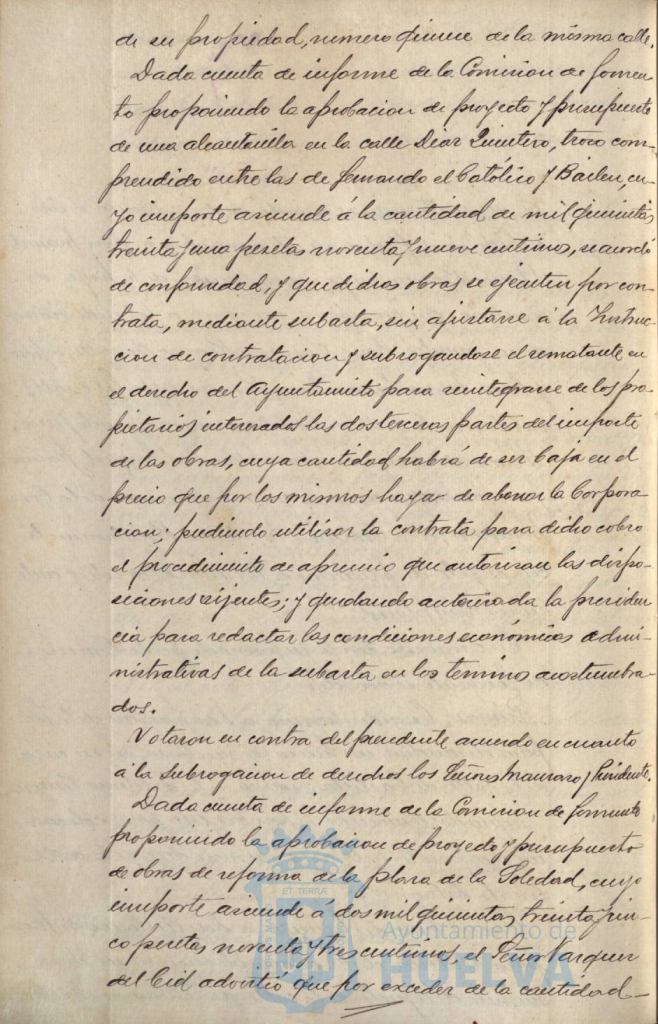 de su propiedad, numero quince de la misma calle.
Dada cuenta de informe de la Comision de Fomen-
to proponiendo la aprobacion de proyecto y presupuesto
de una alcantarilla en la calle Diaz Quintero, trozo com-
prendido entre las de Fernando el Católico y Bailen, cu-
yo importe asciende á la cantidad de mil quinientas
treinta y una pesetas noventa y nueve centimos, se acordó
de conformidad, y que dichas obras se ejecuten por con-
trata, mediante subasta, sin ajustarse á la Instruc-
cion de contratacion y subrogandose el rematante en
el derecho del Ayuntamiento para reintegrarse de los pro-
pietarios interesados las dos terceras partes del importe
de las obras, cuya cantidad habrá de ser baja en el
precio que por los mismos haya de abonar la Corpora-
cion; pudiendo utilizar la contrata para dicho cobro
el procedimiento de apremio que autorizan las dispo-
siciones vijentes; y quedando autorizada la presiden-
cia para redactar las condiciones económicas admi-
nistrativas de la subasta en los terminos acostumbra-
dos.
Votaron en contra del precedente acuerdo en cuanto
á la subrogacion de derechos los Señores y Presidente.
Dada cuenta de informe de la Comision de Fomento
proponiendo la aprobacion de proyecto y presupuesto
de obras de reforma de la plaza de la Soledad, cuyo
importe asciende á dos mil quinientas treinta y cin-
co pesetas noventa y tres centimos, el Señor Vazquez
del Cid advirtió que por exceder de la cantidad
ET TERRÆ
Ayuntamiento de
HUELVA